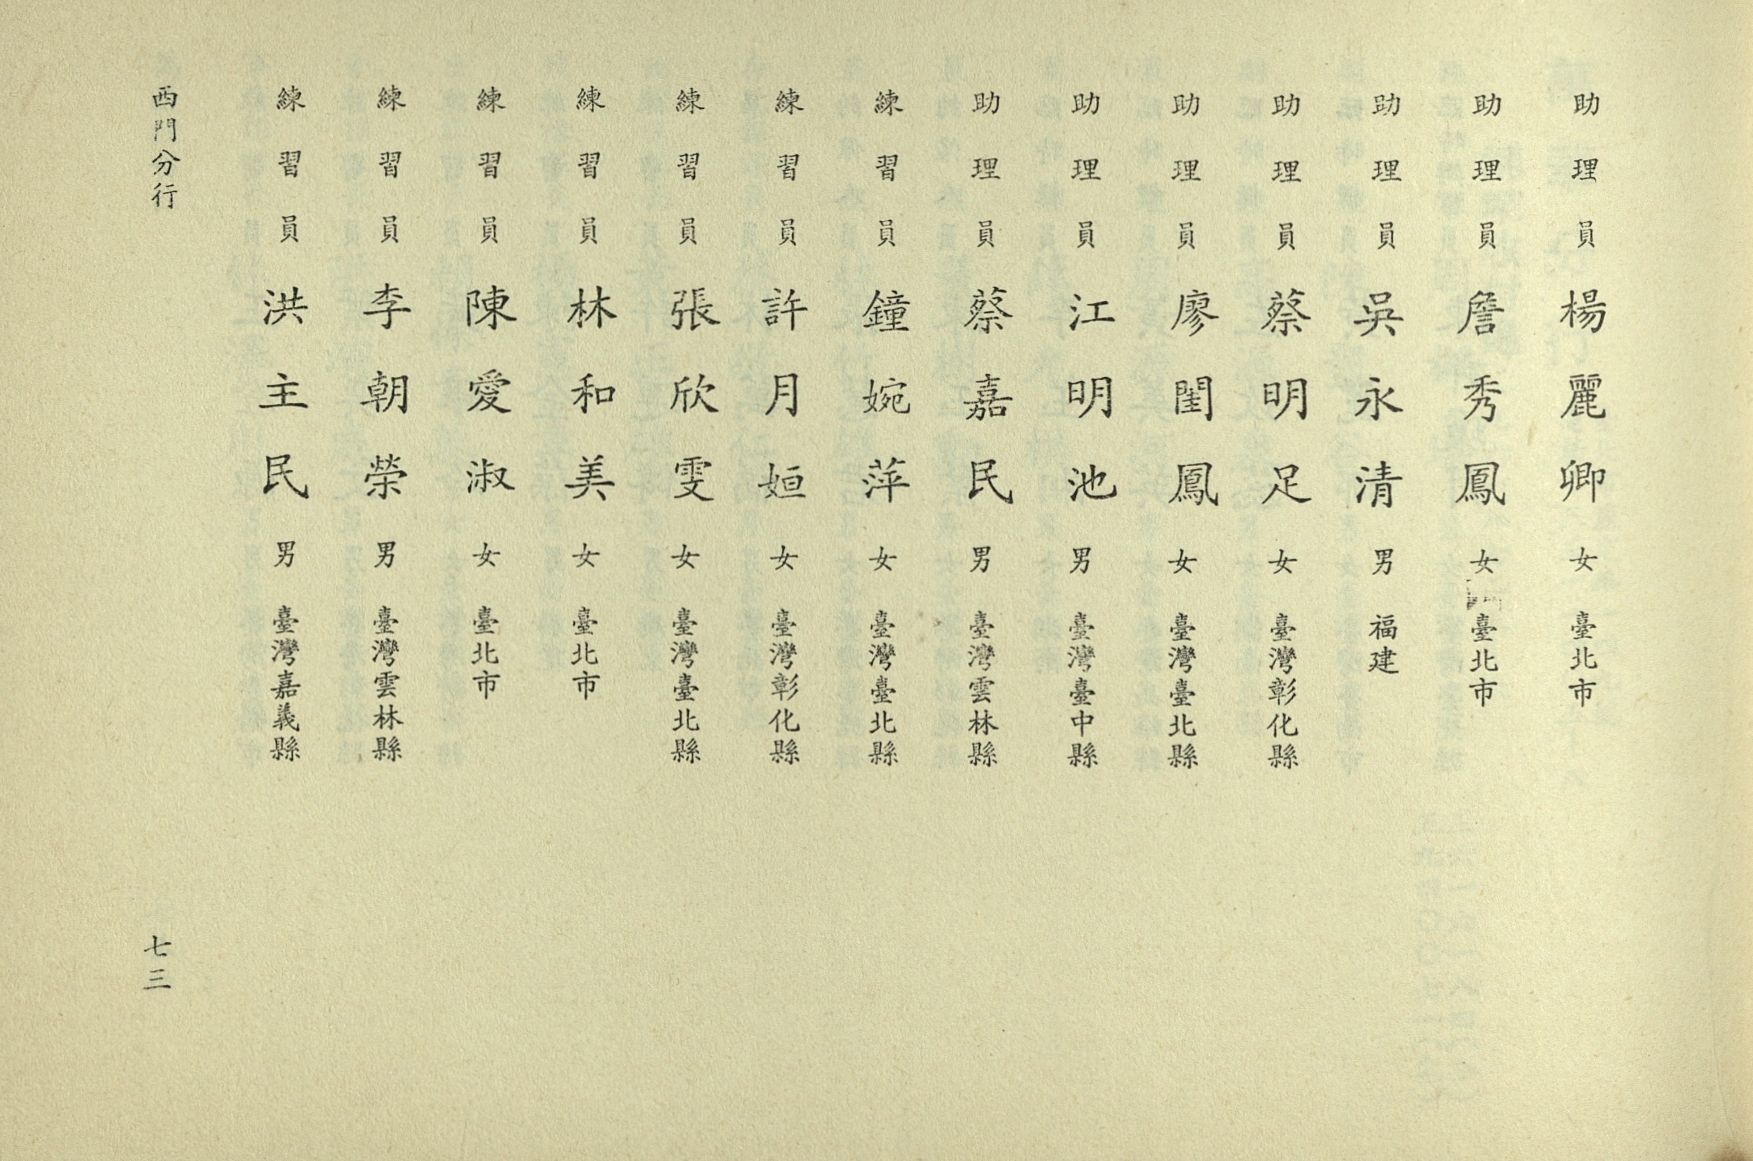 助理員楊麗卿女臺北市
助理員詹秀鳳女臺北市
助理員吳永清男福建
助理員蔡明足女臺灣彰化縣
助理員廖閨鳳女臺灣臺北縣
助理員江明池男臺灣臺中縣
助理員蔡嘉民男臺灣雲林縣
練習員鐘婉萍女臺灣臺北縣
練習員許月姮女臺灣彰化縣
練習員張欣雯女臺灣臺北縣
練習員林和美女臺北市
練習員陳愛淑女臺北市
練習員李朝榮男臺灣雲林縣
練習員洪主民男臺灣嘉義縣
西門分行
七三